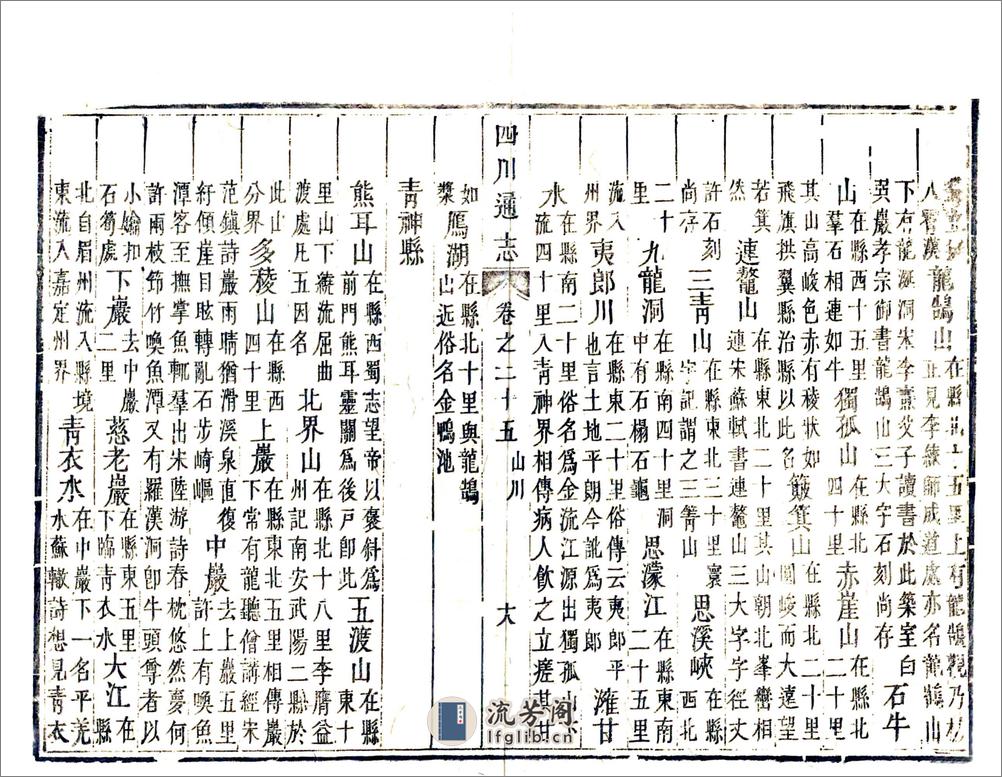 龍鵠山在縣北十五里上有龍鵠觀乃楊正見李練師成道處亦名龍鶴山
下有龍洞宋李燾父子讀書於此築室白巽巖孝宗御書龍鵠山三大字石刻尚存石牛
山在縣西十五里羣石相連如牛獨孤山在縣北四十里赤崖山在縣北二十里
其山高峻色赤有稜狀如飛旗拱翼縣治縣以此名簸箕山在縣北二十里圓峻而大遠望
若箕然連鰲山在縣東北二十里其山朝北峯巒相連宋蘇軾書連鰲山三大字字徑丈
許石刻尚存三青山在縣東北三十里寰宇記謂之三箐山思溪峽在縣西北
二十里九龍洞在縣南四十里洞中有石楊石龜思濛江在縣東南二十五里
流入州界夷郎川在縣東二十里俗傳云夷郎平也言土地平朗今訛爲夷郎濰甘
水在縣南二十里俗名爲金流江源出獨孤山流四十里入青神界相傳病人飲之立瘥其甘
四川通志 卷之二十五 山川 大
如漿鴈湖在縣北十里與龍鵠山近俗名金鴨池
青神縣
熊耳山在縣西蜀志望帝以褒斜爲前門熊耳靈關爲後戸卽此五渡山在縣東十
里山下縈流屈曲渡處凡五因名北界山在縣北十八里李膺益州記南安武陽二縣於
此山分界多稜山在縣西四十里上巖在縣東北五里相傳巖下常有龍聽僧講經宋
范鎮詩巖雨晴猶滑溪泉直復紆傾崖目眩轉亂石步崎嶇中巖去上巖五里許上有喚魚
潭客至撫掌魚輒羣出宋陸游詩春枕悠然夢何許兩枝筇竹喚魚潭又有羅漢洞卽牛頭尊者以
小鑰扣石筍處下巖去中巖二里慈老巖在縣東五里下臨青衣水大江在縣
北自眉州流入縣境東流入嘉定州界青衣水在中巖下一名平羌水蘇轍詩想見青衣
流芳阁
lfglib.cn